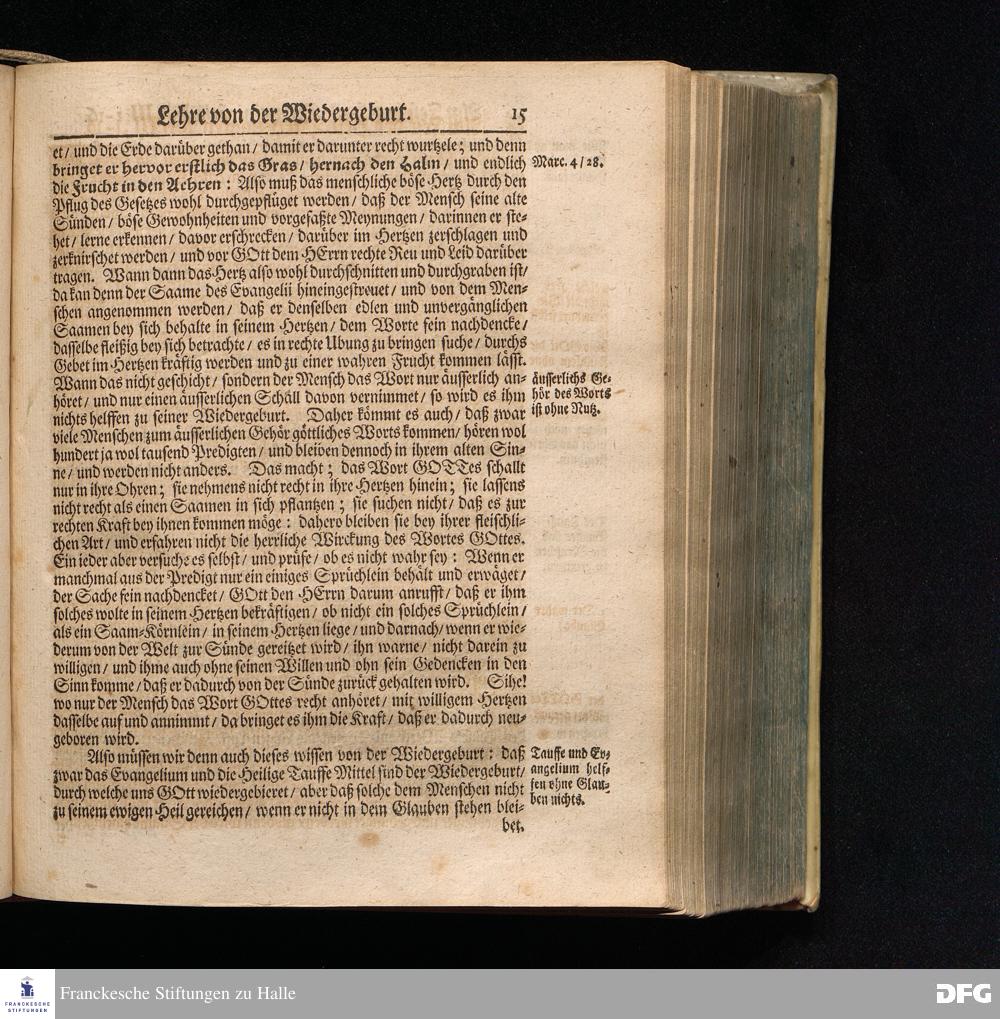 Lehre von der Wiedergeburt. 15
et/ und die Erde darüber gethan/ damit er darunter recht wurtzele; und denn
bringet er hervor erstlich das Gras/ hernach den Halm/ und endlich
die Frucht in den Aehren: Also muß das menschliche böse Hertz durch den
Pflug des Gesetzes wohl durchgepflüget werden/ daß der Mensch seine alte
Sünden/ böse Gewohnheiten und vorgefaßte Meynungen/ darinnen er ste-
het/ lerne erkennen/ davor erschrecken/ darüber im Hertzen zerschlagen und
zerknirschet werden/ und vor GOtt dem HErrn rechte Reu und Leid darüber
tragen. Wann dann das Hertz also wohl durchschnitten und durchgraben ist/
da kan denn der Saame des Evangelii hineingestreuet/ und von dem Men-
schen angenommen werden/ daß er denselben edlen und unvergänglichen
Saamen bey sich behalte in seinem Hertzen/ dem Worte fein nachdencke/
dasselbe fleißig bey sich betrachte/ es in rechte Ubung zu bringen suche/ durchs
Gebet im Hertzen kräftig werden und zu einer wahren Frucht kommen lässt.
Wann das nicht geschicht/ sondern der Mensch das Wort nur äusserlich an-
höret/ und nur einen äusserlichen Schall davon vernimmet/ so wird es ihm
nichts helffen zu seiner Wiedergeburt. Daher kömmt es auch/ daß zwar
viele Menschen zum äusserlichen Gehör göttliches Worts kommen/ hören wol
hundert ja wol tausend Predigten/ und bleiben dennoch in ihrem alten Sin-
ne/ und werden nicht anders. Das macht; das Wort GOTTes schallt
nur in ihre Ohren; sie nehmens nicht recht in ihre Hertzen hinein; sie lassens
nicht recht als einen Saamen in sich pflantzen; sie suchen nicht/ daß es zur
rechten Kraft bey ihnen kommen möge: dahero bleiben sie bey ihrer fleischli-
chen Art/ und erfahren nicht die herrliche Wirckung des Wortes GOttes.
Ein ieder aber versuche es selbst/ und prüfe/ ob es nicht wahr sey: Wenn er
manchmal aus der Predigt nur ein einiges Sprüchlein behält und erwäget/
der Sache fein nachdencket/ GOtt den HErrn darum anrufft/ daß er ihm
solches wolte in seinem Hertzen bekräftigen/ ob nicht ein solches Sprüchlein/
als ein Saam-Körnlein/ in seinem Hertzen liege/ und darnach/ wenn er wie-
derum von der Welt zur Sünde gereitzet wird/ ihn warne/ nicht darein zu
willigen/ und ihme auch ohne seinen Willen und ohn sein Gedencken in den
Sinn komme/ daß er dadurch von der Sünde zurück gehalten wird. Sihe!
wo nur der Mensch das Wort GOttes recht anhöret/ mit willigem Hertzen
dasselbe auf und annimmt/ da bringet es ihm die Kraft/ daß er dadurch neu-
geboren wird.
Also müssen wir denn auch dieses wissen von der Wiedergeburt: daß
zwar das Evangelium und die Heilige Tauffe Mittel sind der Wiedergeburt/
durch welche uns GOtt wiedergebieret/ aber daß solche dem Menschen nicht
zu seinem ewigen Heil gereichen/ wenn er nicht in dem Glauben stehen blei-
bet.
Marc. 4/28.
äusserlichs Ge-
hör des Worts
ist ohne Nutz.
Tauffe und Ev-
angelium helf-
fen ohne Glau-
ben nichts.
FRANCKESCHE
STIFTUNGEN
Franckesche Stiftungen zu Halle
DFG